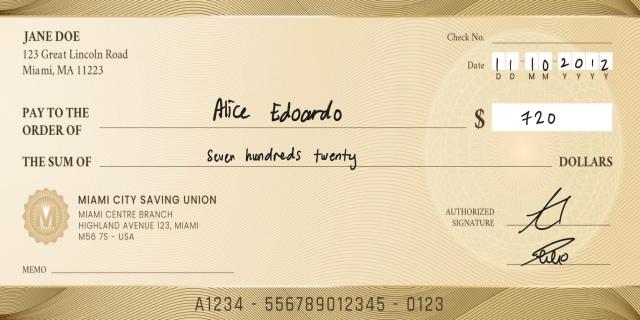 JANE DOE
123 Great Lincoln Road
Miami, MA 11223
Check No.
Date 11 10 2012
D D M M Y Y Y Y
PAY TO THE
ORDER OF Alice Edoardo
$ 720
THE SUM OF Seven hundreds twenty DOLLARS
M
MIAMI CITY SAVING UNION
MIAMI CENTRE BRANCH
HIGHLAND AVENUE 123, MIAMI
M56 7S - USA
AUTHORIZED
SIGNATURE
MEMO
A1234 - 556789012345 - 0123